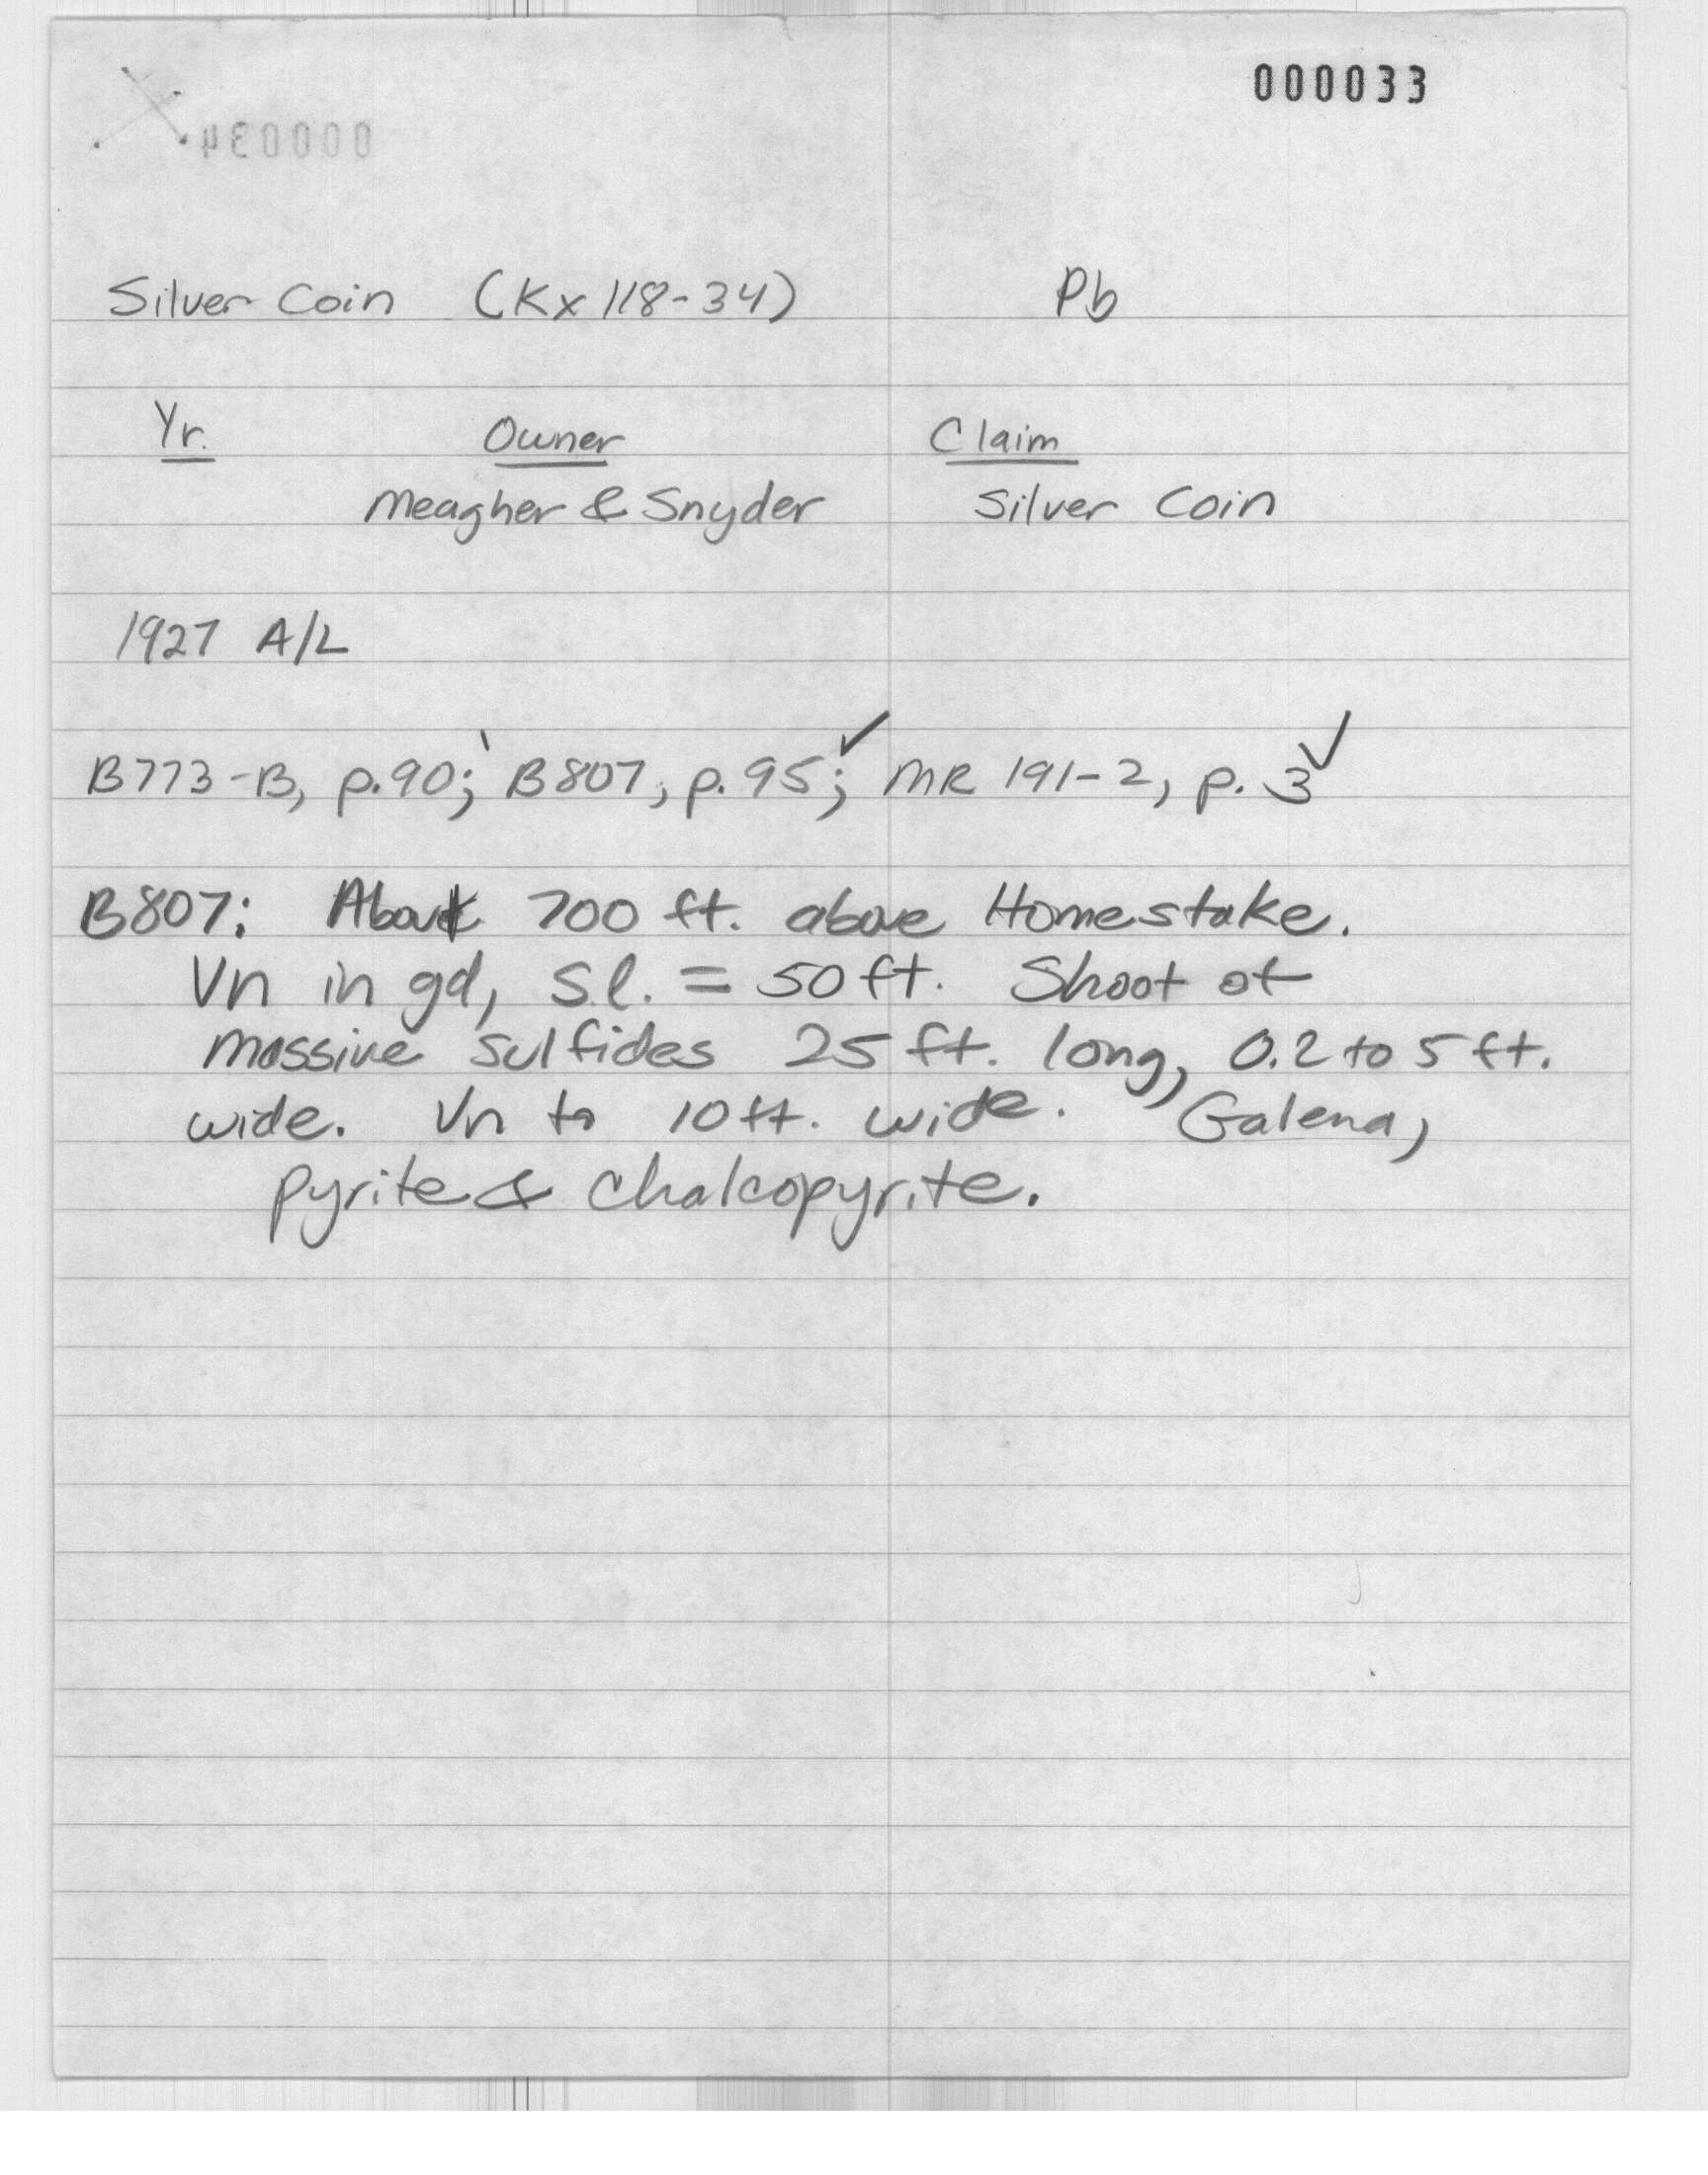 000033
000034
Silver Coin (Kx 118-34) Pb
Yr. Owner Claim
Meagher & Snyder Silver Coin
1927 A/L
B773-B, p.90; B807, p.95; MR 191-2, p. 3
B807: About 700 ft. above Homestake.
Vn in gd, s.l. = 50 ft. Shoot of
massive sulfides 25 ft. long, 0.2 to 5 ft.
wide. Vn to 10 ft. wide. Galena,
pyrite & chalcopyrite.